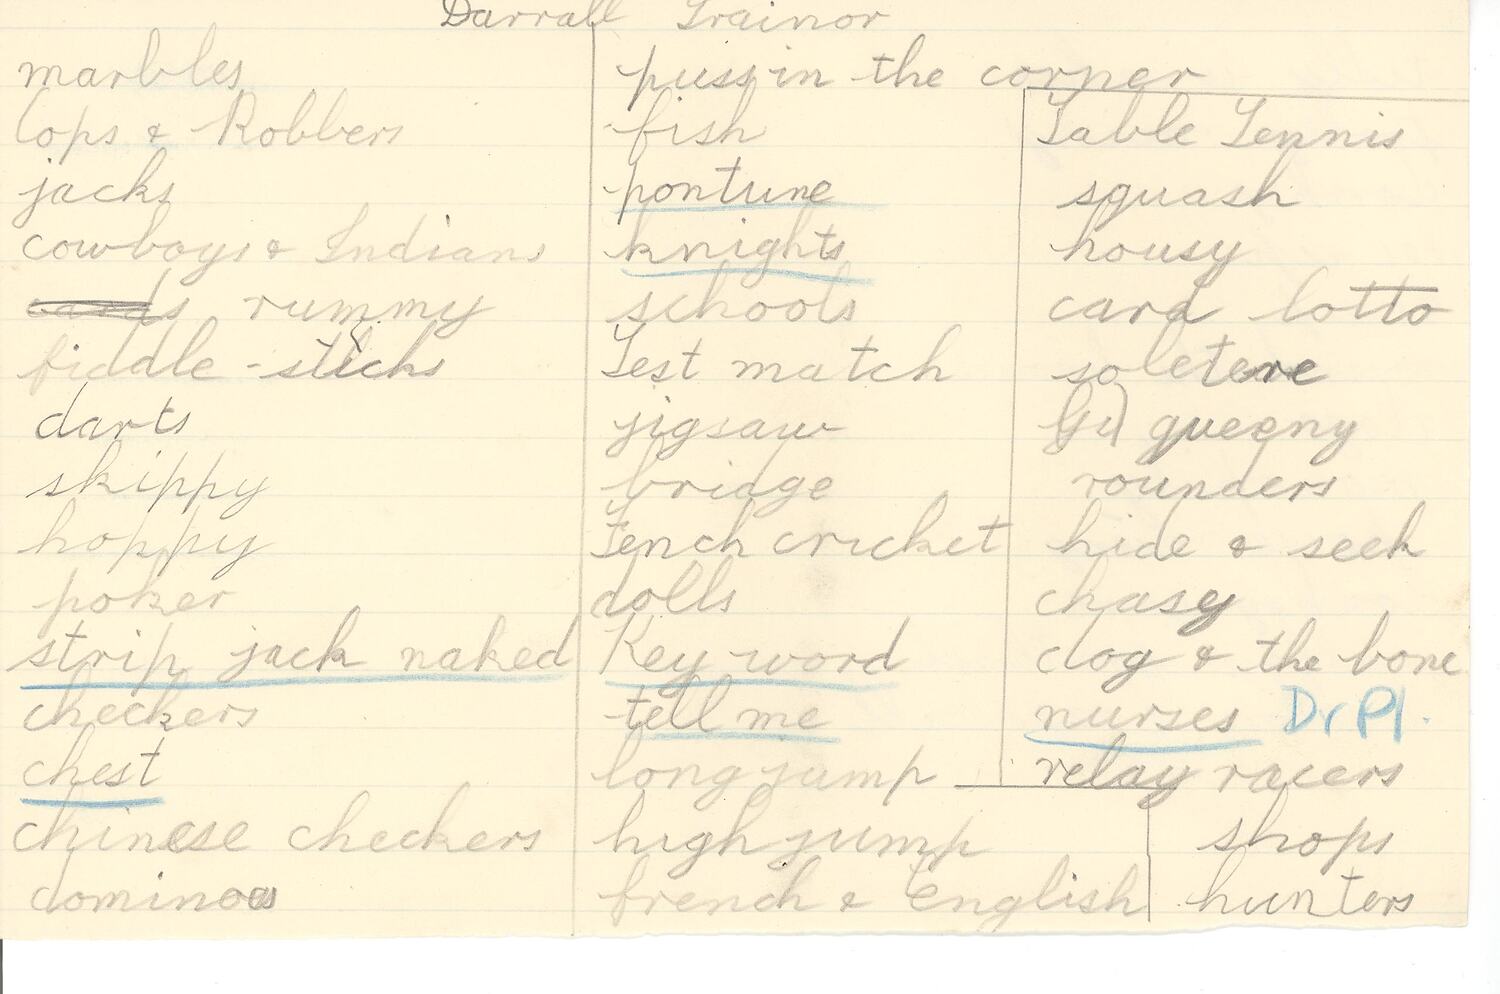 Darrall Trainor
marbles
Cops & Robbers
jacks
cowboys & Indians
cards rummy
fiddle-sticks
darts
skippy
hoppy
poker
strip jack naked
checkers
chest
chinese checkers
dominoes
puss in the corner
fish
pontune
knights
schools
Test match
jigsaw
bridge
Tench cricket
dolls
Key word
tell me
long jump
high jump
french & English
Table Tennis
squash
housy
card lotto
soletere
queeny
rounders
hide & seek
chasy
dog & the bone
nurses Dr Pl.
relay racers
shops
hunters